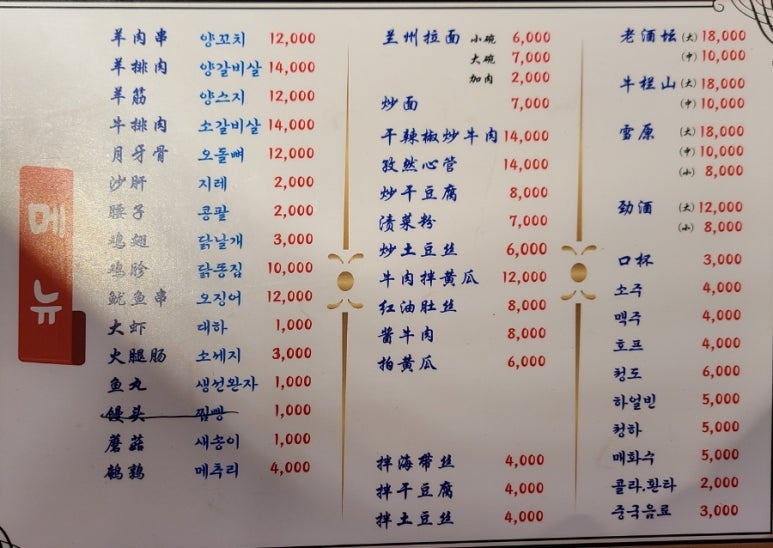 메뉴
羊肉串 양꼬치 12,000
羊排肉 양갈비살 14,000
羊筋 양스지 12,000
牛排肉 소갈비살 14,000
月牙骨 오돌뼈 12,000
沙肝 지레 2,000
腰子 콩팥 2,000
鸡翅 닭날개 3,000
鸡胗 닭똥집 10,000
鱿鱼串 오징어 12,000
大虾 대하 1,000
火腿肠 소세지 3,000
鱼丸 생선완자 1,000
馒头 찜빵 1,000
蘑菇 새송이 1,000
鹌鹑 메추리 4,000
兰州拉面 小碗 6,000
大碗 7,000
加肉 2,000
炒面 7,000
干辣椒炒牛肉 14,000
孜然心管 14,000
炒干豆腐 8,000
渍菜粉 7,000
炒土豆丝 6,000
牛肉拌黄瓜 12,000
红油肚丝 8,000
酱牛肉 8,000
拍黄瓜 6,000
拌海带丝 4,000
拌干豆腐 4,000
拌土豆丝 4,000
老酒坛 (大) 18,000
(中) 10,000
牛栏山 (大) 18,000
(中) 10,000
雪原 (大) 18,000
(中) 10,000
(小) 8,000
劲酒 (大) 12,000
(小) 8,000
口杯 3,000
소주 4,000
맥주 4,000
호프 4,000
청도 6,000
하얼빈 5,000
청하 5,000
매화수 5,000
콜라.환타 2,000
중국음료 3,000